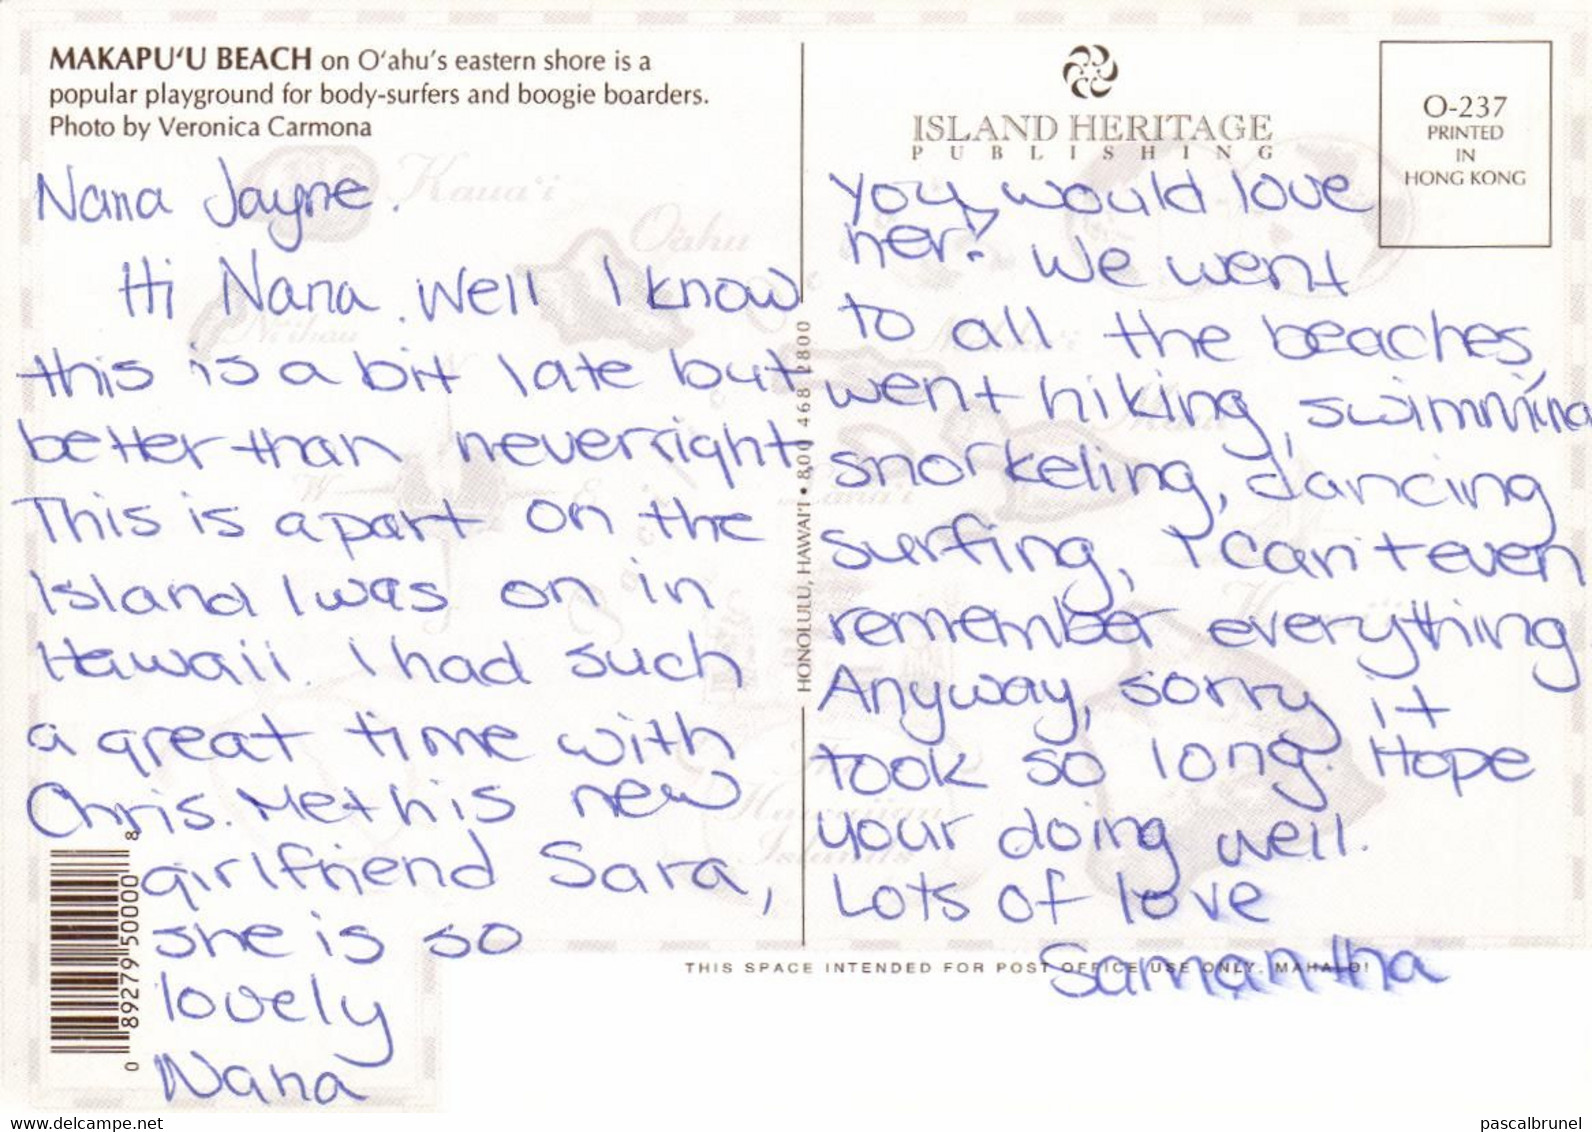 MAKAPU‘U BEACH on O‘ahu’s eastern shore is a
popular playground for body-surfers and boogie boarders.
Photo by Veronica Carmona
Nana Jayne.
Hi Nana. Well I know
this is a bit late but
better than never right
This is apart on the
Island I was on in
Hawaii. I had such
a great time with
Chris. Met his new
girlfriend Sara,
she is so
lovely
Nana
ISLAND HERITAGE
PUBLISHING
O-237
PRINTED
IN
HONG KONG
you, would love
her! We went
to all the beaches,
went hiking, swimming
snorkeling, dancing
surfing, I can't even
remember everything
Anyway, sorry it
took so long. Hope
your doing well.
Lots of love
Samantha
HONOLULU, HAWAI‘I • 800 468 2800
Kaua‘i
O‘ahu
Ni‘ihau
W
E
S
Lana‘i
Hawaiian
Islands
0 89279 50000 8
THIS SPACE INTENDED FOR POST OFFICE USE ONLY. MAHALO!
www.delcampe.net
pascalbrunel